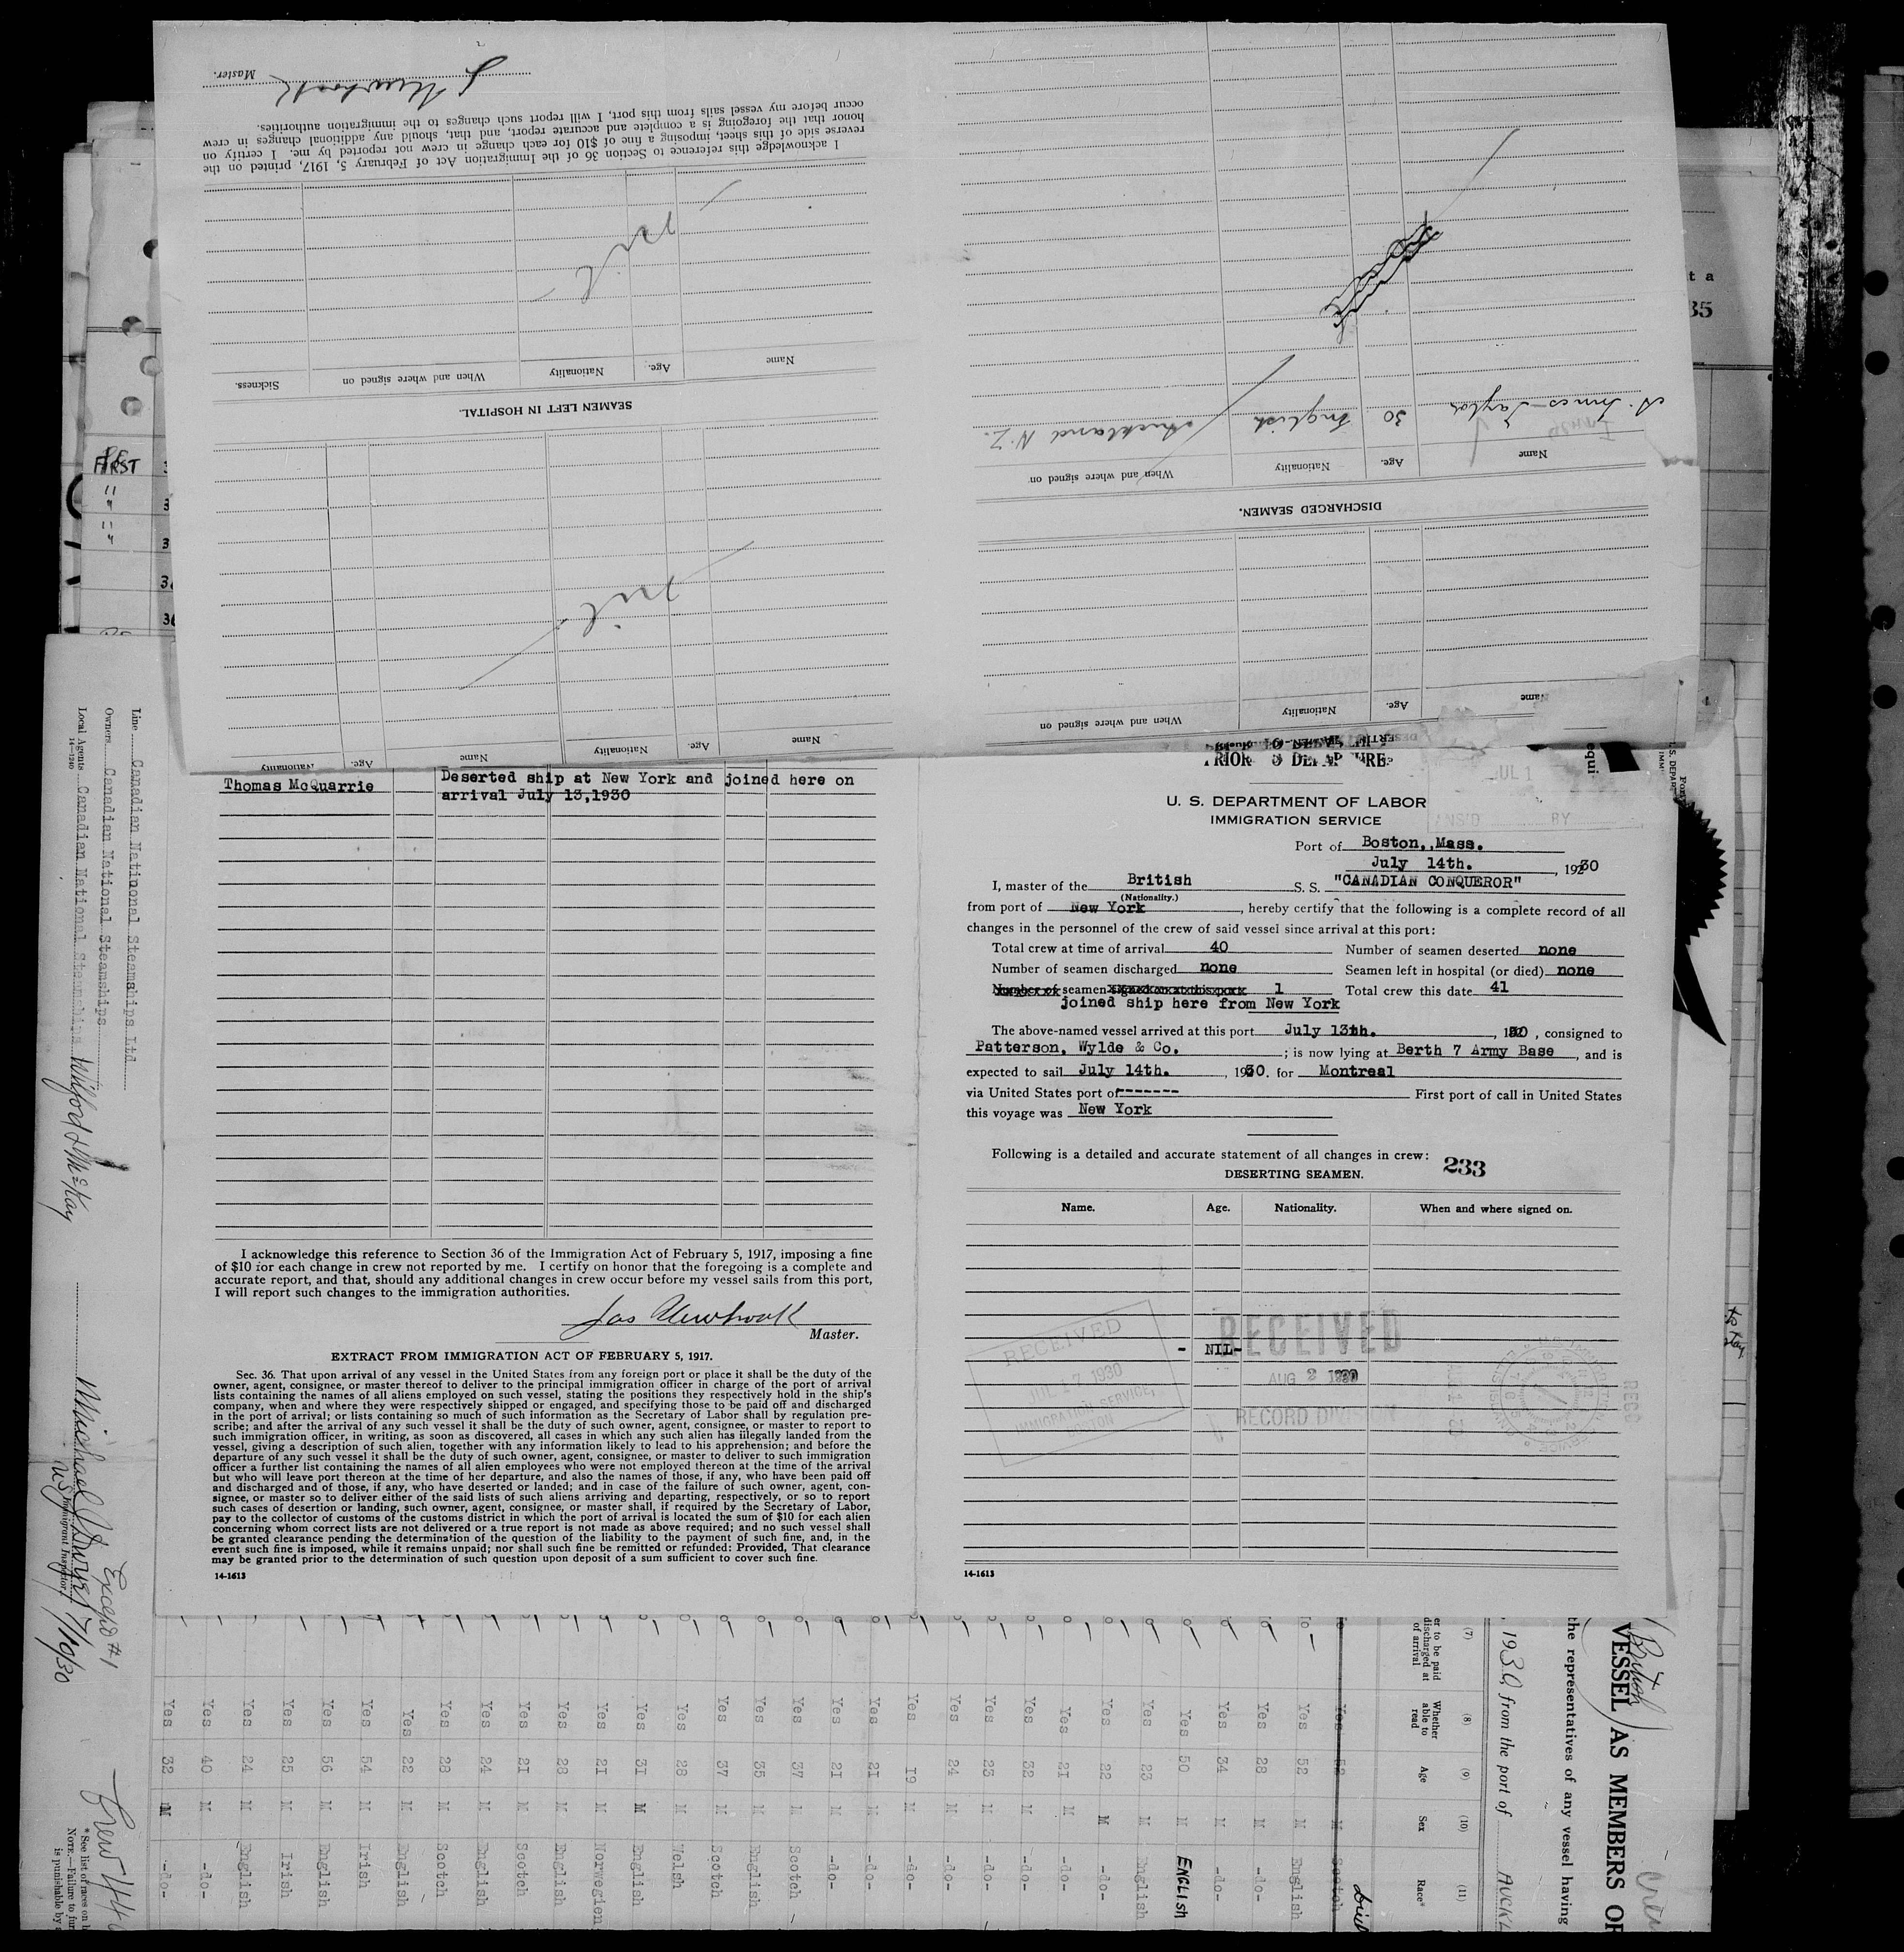 Master.
I acknowledge this reference to Section 36 of the Immigration Act of February 5, 1917, printed on the
reverse side of this sheet, imposing a fine of $10 for each change in crew not reported by me. I certify on
honor that the foregoing is a complete and accurate report, and that, should any additional changes in crew
occur before my vessel sails from this port, I will report such changes to the immigration authorities.
nil
Name Age. Nationality When and where signed on Sickness.
SEAMEN LEFT IN HOSPITAL.
nil
Name Age. Nationality Name Age. Nationality
A. Innes-Taylor 30 English Auckland N.Z.
Name Age. Nationality When and where signed on
DISCHARGED SEAMEN.
Name Age. Nationality When and where signed on
FIRST
Thomas McQuarrie Deserted ship at New York and joined here on
arrival July 13,1930
I acknowledge this reference to Section 36 of the Immigration Act of February 5, 1917, imposing a fine
of $10 for each change in crew not reported by me. I certify on honor that the foregoing is a complete and
accurate report, and that, should any additional changes in crew occur before my vessel sails from this port,
I will report such changes to the immigration authorities.
Jas Newhook
Master.
EXTRACT FROM IMMIGRATION ACT OF FEBRUARY 5, 1917.
Sec. 36. That upon arrival of any vessel in the United States from any foreign port or place it shall be the duty of the
owner, agent, consignee, or master thereof to deliver to the principal immigration officer in charge of the port of arrival
lists containing the names of all aliens employed on such vessel, stating the positions they respectively hold in the ship's
company, when and where they were respectively shipped or engaged, and specifying those to be paid off and discharged
in the port of arrival; or lists containing so much of such information as the Secretary of Labor shall by regulation pre-
scribe; and after the arrival of any such vessel it shall be the duty of such owner, agent, consignee, or master to report to
such immigration officer, in writing, as soon as discovered, all cases in which any such alien has illegally landed from the
vessel, giving a description of such alien, together with any information likely to lead to his apprehension; and before the
departure of any such vessel it shall be the duty of such owner, agent, consignee, or master to deliver to such immigration
officer a further list containing the names of all alien employees who were not employed thereon at the time of the arrival
but who will leave port thereon at the time of her departure, and also the names of those, if any, who have been paid off
and discharged and of those, if any, who have deserted or landed; and in case of the failure of such owner, agent, con-
signee, or master so to deliver either of the said lists of such aliens arriving and departing, respectively, or so to report
such cases of desertion or landing, such owner, agent, consignee, or master shall, if required by the Secretary of Labor,
pay to the collector of customs of the customs district in which the port of arrival is located the sum of $10 for each alien
concerning whom correct lists are not delivered or a true report is not made as above required; and no such vessel shall
be granted clearance pending the determination of the question of the liability to the payment of such fine, and, in the
event such fine is imposed, while it remains unpaid; nor shall such fine be remitted or refunded: Provided, That clearance
may be granted prior to the determination of such question upon deposit of a sum sufficient to cover such fine.
14-1613
U. S. DEPARTMENT OF LABOR
IMMIGRATION SERVICE
ANS'D BY
JUL 1
Port of Boston,,Mass.
July 14th. , 1930
I, master of the British S. S. "CANADIAN CONQUEROR"
(Nationality.)
from port of New York , hereby certify that the following is a complete record of all
changes in the personnel of the crew of said vessel since arrival at this port:
Total crew at time of arrival 40 Number of seamen deserted none
Number of seamen discharged none Seamen left in hospital (or died) none
Number of seamen 1 Total crew this date 41
joined ship here from New York
The above-named vessel arrived at this port July 13th. , 1930 , consigned to
Patterson, Wylde & Co. ; is now lying at Berth 7 Army Base , and is
expected to sail July 14th. , 1930. for Montreal
via United States port of ------- First port of call in United States
this voyage was New York
Following is a detailed and accurate statement of all changes in crew:
233
DESERTING SEAMEN.
Name. Age. Nationality. When and where signed on.
- NIL-
RECEIVED
JUL 17 1930
IMMIGRATION SERVICE,
RECEIVED
AUG 2 1930
RECORD DIVISION
14-1613
Line Canadian Natinonal Steamships Ltd
Owners Canadian National Steamships
Local Agents Canadian National Steamships
14-1240
Wilford d McKay
Except #1
Immigrant Inspector
7/10/30
*See list of races on b
NOTE.—Failure to fur
is punishable by a
British
VESSEL AS MEMBERS OF
the representatives of any vessel having
, 1930, from the port of AUCKL
(7) (8) (9) (10) (11)
er to be paid
discharged at
of arrival
Whether
able to
read
Age Sex Race*
Yes 52 M Scotch
Yes 52 M English
Yes 28 M -do-
Yes 34 M -do-
Yes 50 M ENGLISH
Yes 23 M English
Yes 22 M -do-
Yes 21 M -do-
Yes 32 M -do-
Yes 23 M -do-
Yes 24 M -do-
Yes 19 M -do-
Yes 21 M -do-
Yes 21 M -do-
Yes 37 M Scotch
Yes 35 M English
Yes 37 M Scotch
Yes 28 M Welsh
Yes 31 M English
Yes 21 M Norwegien
Yes 28 M English
Yes 21 M Scotch
Yes 24 M English
Yes 28 M Scotch
Yes 22 M English
Yes 54 M Irish
Yes 56 M English
Yes 25 M Irish
Yes 24 M English
Yes 40 M -do-
Yes 32 M -do-